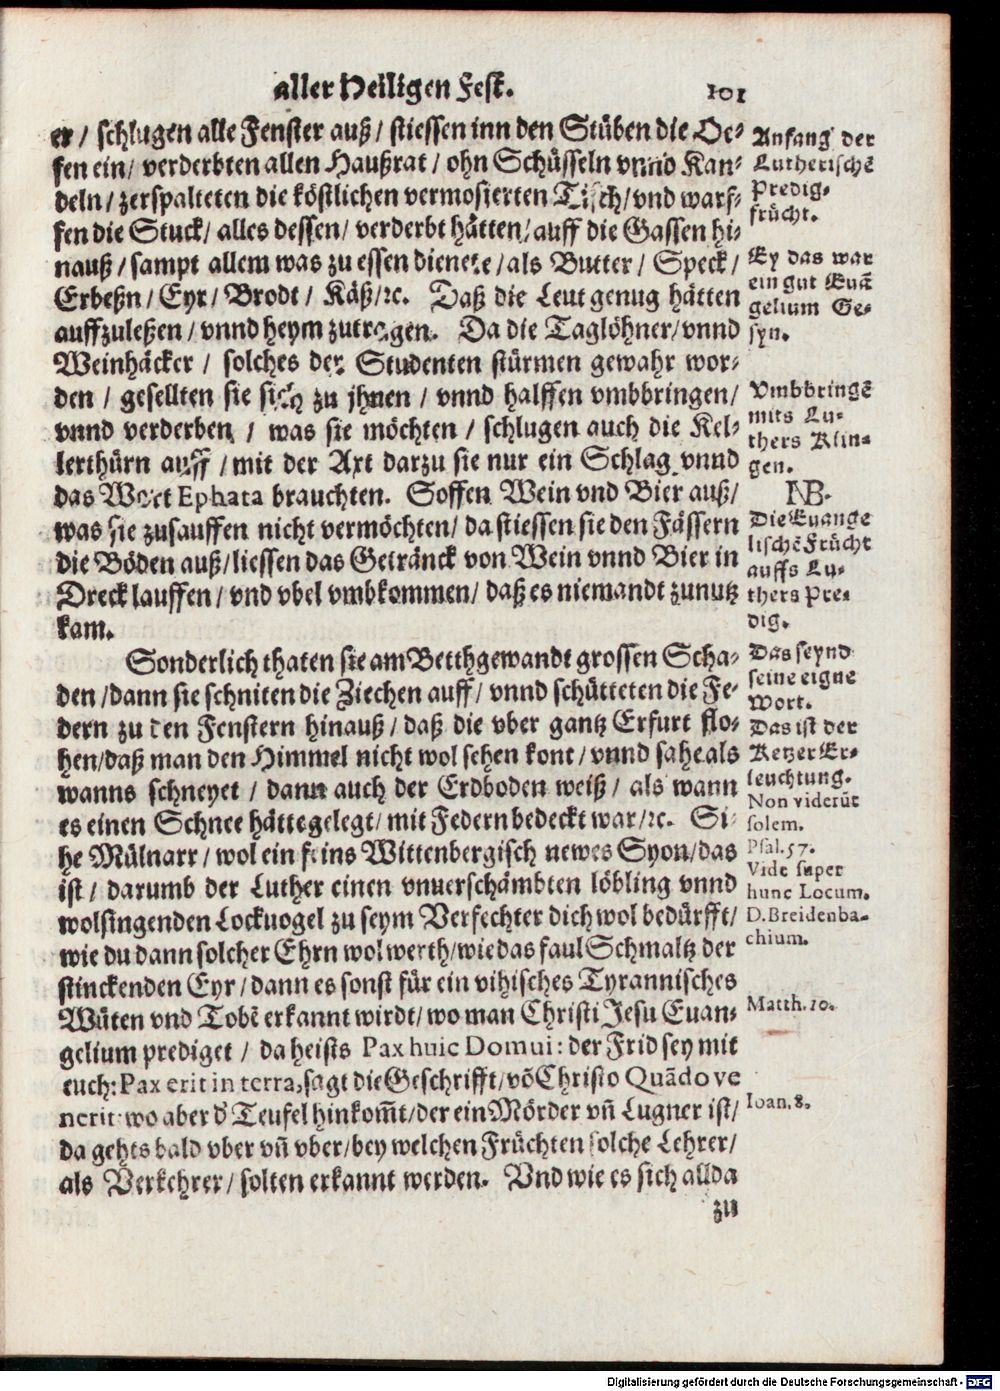 aller Heiligen Fest. 101
er / schlugen alle Fenster auß / stiessen inn den Stüben die Oe-
fen ein / verderbten allen Haußrat / ohn Schüsseln vnnd Kan-
deln / zerspalteten die köstlichen vermosierten Tisch / vnd warf-
fen die Stuck / alles dessen / verderbt hätten / auff die Gassen hi-
nauß / sampt allem was zu essen dienete / als Butter / Speck /
Erbeßn / Eyr / Brodt / Käß / ꝛc. Daß die Leut genug hätten
auffzuleßen / vnnd heym zutragen. Da die Taglöhner / vnnd
Weinhäcker / solches der Studenten stürmen gewahr wor-
den / gesellten sie sich zu jhnen / vnnd halffen vmbbringen /
vnnd verderben / was sie möchten / schlugen auch die Kel-
lerthürn auff / mit der Axt darzu sie nur ein Schlag vnnd
das Wort Ephata brauchten. Soffen Wein vnd Bier auß /
was sie zusauffen nicht vermöchten / da stiessen sie den Fässern
die Böden auß / liessen das Getränck von Wein vnnd Bier in
Dreck lauffen / vnd vbel vmbkommen / daß es niemandt zunutz
kam.
Sonderlich thaten sie am Betthgewandt grossen Scha-
den / dann sie schniten die Ziechen auff / vnnd schütteten die Fe-
dern zu den Fenstern hinauß / daß die vber gantz Erfurt flo-
hen / daß man den Himmel nicht wol sehen kont / vnnd sahe als
wanns schneyet / dann auch der Erdboden weiß / als wann
es einen Schnee hätte gelegt / mit Federn bedeckt war / ꝛc. Si-
he Mülnarr / wol ein feins Wittenbergisch newes Syon / das
ist / darumb der Luther einen vnuerschämbten löbling vnnd
wolsingenden Lockuogel zu seym Verfechter dich wol bedürfft /
wie du dann solcher Ehrn wol werth / wie das faul Schmaltz der
stinckenden Eyr / dann es sonst für ein vihisches Tyrannisches
Wüten vnd Tobẽ erkannt wirdt / wo man Christi Jesu Euan-
gelium prediget / da heists Pax huic Domui: der Frid sey mit
euch: Pax erit in terra, sagt die Geschrifft / võ Christo Quãdo ve
nerit: wo aber d' Teufel hinkom̃t / der ein Mörder vñ Lugner ist /
da gehts bald vber vñ vber / bey welchen Früchten solche Lehrer /
als Verkehrer / solten erkannt werden. Vnd wie es sich allda
zu
Anfang der
Lutherischẽ
Predig-
frücht.
Ey das war
ein gut Euã
gelium Ge-
syn.
Vmbbringẽ
mits Lu-
thers Klin-
gen.
NB.
Die Euange
lischẽ Frücht
auffs Lu-
thers Pre-
dig.
Das seynd
seine eigne
Wort.
Das ist der
Ketzer Er-
leuchtung.
Non viderũt
solem.
Psal. 57.
Vide super
hunc Locum.
D. Breidenba-
chium.
Matth. 10.
Ioan. 8.
Digitalisierung gefördert durch die Deutsche Forschungsgemeinschaft - DFG